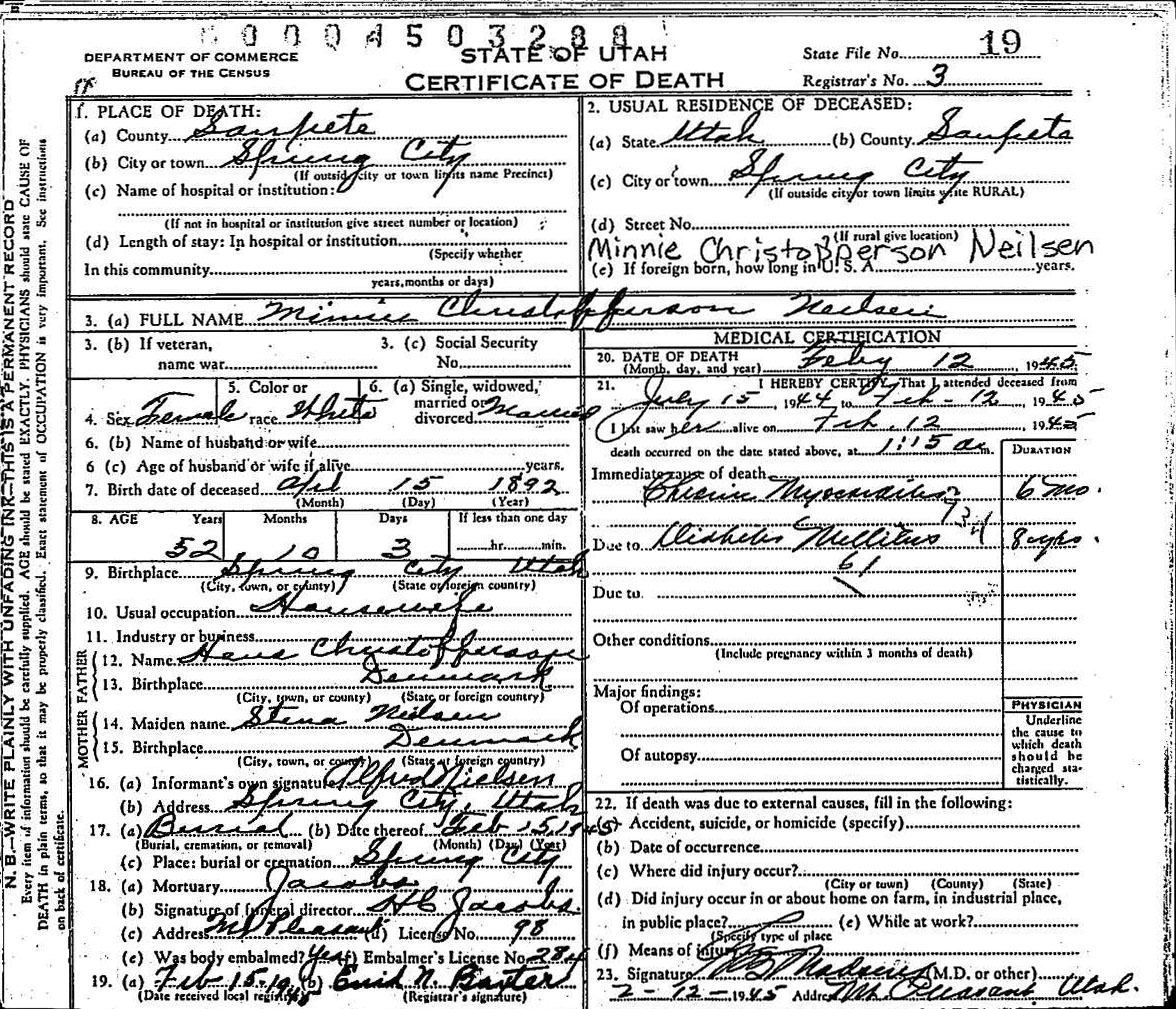 0004503288
DEPARTMENT OF COMMERCE
BUREAU OF THE CENSUS
STATE OF UTAH
CERTIFICATE OF DEATH
State File No. 19
Registrar's No. 3
N. B.—WRITE PLAINLY WITH UNFADING INK—THIS IS A PERMANENT RECORD
Every item of information should be carefully supplied. AGE should be stated EXACTLY. PHYSICIANS should state CAUSE OF
DEATH in plain terms, so that it may be properly classified. Exact statement of OCCUPATION is very important. See instructions
on back of certificate.
1. PLACE OF DEATH:
(a) County Sanpete
(b) City or town Spring City
(If outside city or town limits name Precinct)
(c) Name of hospital or institution:
(If not in hospital or institution give street number or location)
(d) Length of stay: In hospital or institution
(Specify whether
In this community
years, months or days)
2. USUAL RESIDENCE OF DECEASED:
(a) State Utah (b) County Sanpete
(c) City or town Spring City
(If outside city or town limits write RURAL)
(d) Street No.
(If rural give location)
Minnie Christopperson Neilsen
(e) If foreign born, how long in U. S. A. years.
3. (a) FULL NAME Minnie Christofferson Neilsen
3. (b) If veteran,
name war
3. (c) Social Security
No.
4. Sex Female
5. Color or
race White
6. (a) Single, widowed,
married or
divorced Married
6. (b) Name of husband or wife
6 (c) Age of husband or wife if alive years.
7. Birth date of deceased Apl 15 1892
(Month) (Day) (Year)
8. AGE Years Months Days If less than one day
52 10 3 hr. min.
9. Birthplace Spring City Utah
(City, town, or county) (State or foreign country)
10. Usual occupation Housewife
11. Industry or business
FATHER
12. Name Hans Christofferson
13. Birthplace Denmark
(City, town, or county) (State or foreign country)
MOTHER
14. Maiden name Stena Neilsen
15. Birthplace Denmark
(City, town, or county) (State or foreign country)
16. (a) Informant's own signature Alfred Nielsen
(b) Address Spring City, Utah
17. (a) Burial (b) Date thereof Feb 15, 1945
(Burial, cremation, or removal) (Month) (Day) (Year)
(c) Place: burial or cremation Spring City
18. (a) Mortuary Jacobs
(b) Signature of funeral director H C Jacobs
(c) Address Mt Pleasant (d) License No. 98
(e) Was body embalmed? Yes (f) Embalmer's License No. 284
19. (a) Feb-15-1945 (b) Enid N. Baxter
(Date received local registrar) (Registrar's signature)
MEDICAL CERTIFICATION
20. DATE OF DEATH
(Month, day, and year) Feby 12 1945
21. I HEREBY CERTIFY, That I attended deceased from
July 15, 1944 to Feb-12, 1945
I last saw her alive on Feb. 12 1945
death occurred on the date stated above, at 1:15 am.
DURATION
Immediate cause of death
Chronic Myocarditis 6 mo.
Due to Diabetes Mellitus 8 yrs.
61
Due to
Other conditions
(Include pregnancy within 3 months of death)
Major findings:
Of operations
Of autopsy
PHYSICIAN
Underline
the cause to
which death
should be
charged sta-
tistically.
22. If death was due to external causes, fill in the following:
(a) Accident, suicide, or homicide (specify)
(b) Date of occurrence
(c) Where did injury occur?
(City or town) (County) (State)
(d) Did injury occur in or about home on farm, in industrial place,
in public place? (e) While at work?
(Specify type of place
(f) Means of injury
23. Signature Madsen (M.D. or other)
2-12-1945 Address Mt Pleasant Utah.